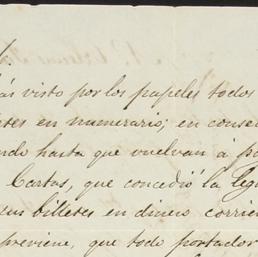 visto por los papeles todos
en numerario; en conse
hasta que vuelvan á
Cartas, que concedió la
sus billetes en dinero corrie
previene, que todo portador